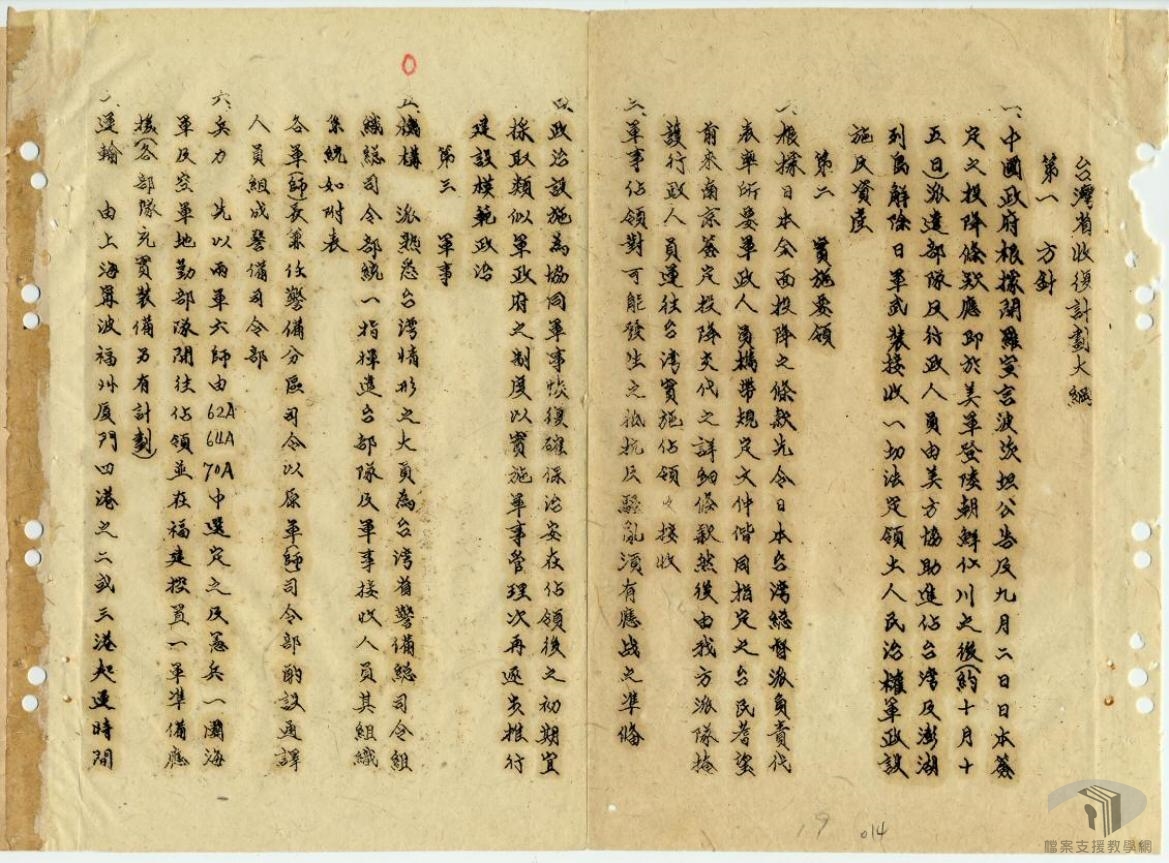 台灣省收復計劃大綱
第一 方針
一、中國政府根據開羅宣言波茨坦公告及九月二日日本簽
定之投降條款應即於美軍登陸朝鮮仁川之後(約十月十
五日)派遣部隊及行政人員由美方協助進佔台灣及澎湖
列島解除日軍武裝接收一切法定領土人民治權軍政設
施民資產
第二 實施要領
根據日本全面投降之條款先令日本台灣總督派負責代
表率所要軍政人員攜帶規定文件偕同指定之台民耆望
前來南京簽定投降交代之詳細條款然後由我方派隊掩
護行政人員運往台灣實施佔領之接收
三、軍事佔領對可能發生之抵抗反騷亂須有應战之準備
四、政治設施為協同軍事恢復確保治安在佔領後之初期宜
採取類似軍政府之制度以實施軍事管理次再逐步推行
建設模範政治
第三 軍事
五、機構 派熟悉台灣情形之大員為台灣省警備總司令組
織總司令部統一指揮進台部隊及軍事接收人員其組織
系統如附表
各軍(師)長兼任警備分區司令以原軍(師)司令部酌設通譯
人員組成警備司令部
六、兵力 先以兩軍六師由62A 64A 70A中選定之及憲兵一團海
軍及空軍地勤部隊開往佔領並在福建控置一軍準備應
援(各部隊充實裝備另有計劃)
運輸 由上海寧波福州厦門四港之二或三港起運時間
19 014
檔案支援教學網